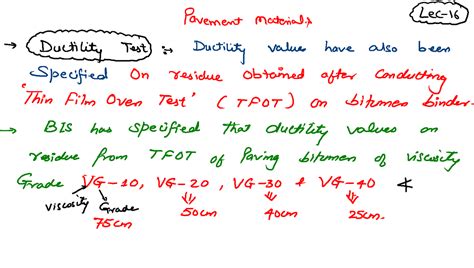 Pavement Materials
Lec-16
→ Ductility Test :- Ductility values have also been
Specified On residue obtained after Conducting
'Thin Film Oven Test' (TFOT) on bitumen binder.
→ BIS has specified that ductility values on
residue from TFOT of Paving bitumen of viscosity
Grade VG-10, VG-20, VG-30 & VG-40
viscosity Grade
75cm 50cm 40cm 25cm.